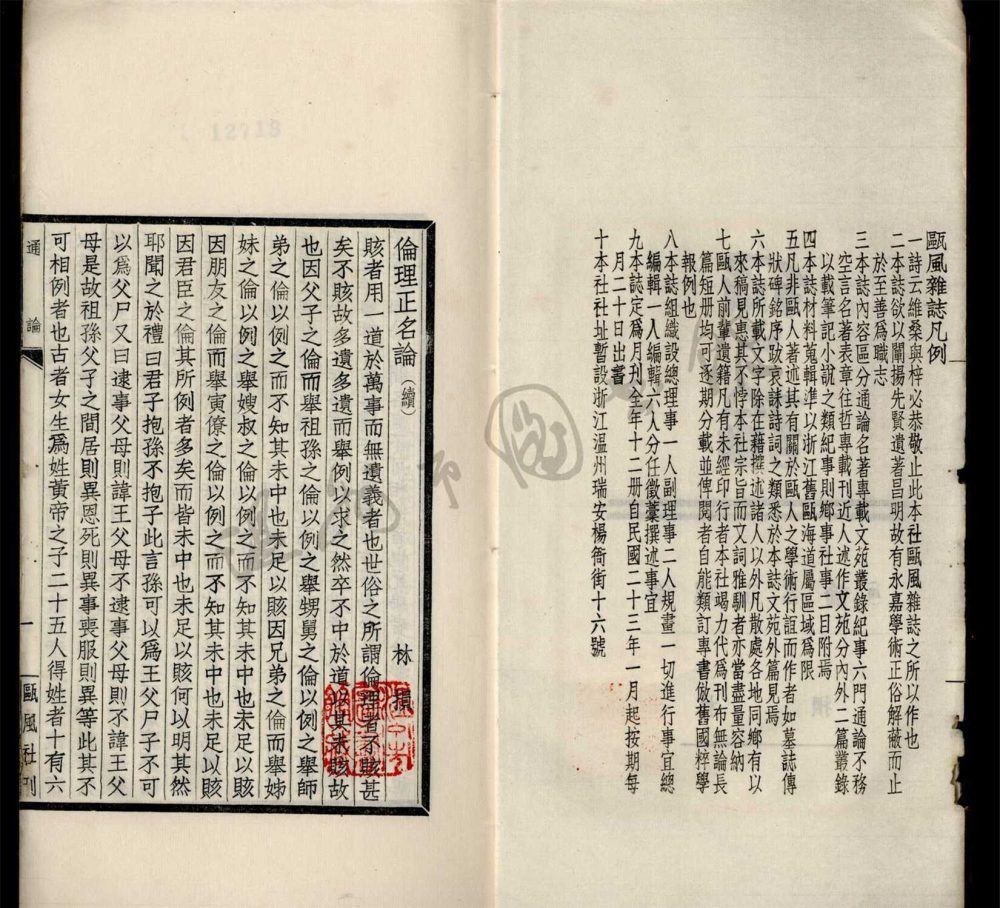 甌風雜誌凡例
一詩云維桑與梓必恭敬止此本社甌風雜誌之所以作也
二本誌欲以闡揚先賢遺著昌明故有永嘉學術正俗解蔽而止
於至善爲職志
三本誌內容區分通論名著專載文苑叢錄紀事六門通論不務
空言名著表章往哲專載刊近人述作文苑分內外二篇叢錄
以載筆記小說之類紀事則鄉事社事二目附焉
四本誌材料蒐輯準以浙江舊甌海道屬區域爲限
五凡非甌人著述其有關於甌人之學術行誼而作者如墓誌傳
狀碑銘序跋哀誄詩詞之類悉於本誌文苑外篇見焉
六本誌所載文字除在藉撰述諸人以外凡散處各地同鄉有以
來稿見惠其不悖本社宗旨而文詞雅馴者亦當盡量容納
七甌人前輩遺籍凡有未經印行者本社竭力代爲刊布無論長
篇短册均可逐期分載並俾閱者自能類訂專書倣舊國粹學
報例也
八本誌組織設總理事一人副理事二人規畫一切進行事宜總
編輯一人編輯六人分任徵藁撰述事宜
九本誌定爲月刊全年十二册自民國二十三年一月起按期每
月二十日出書
十本社社址暫設浙江溫州瑞安楊衙街十六號
12713
倫理正名論（續）
林損
賅者用一道於萬事而無遺義者也世俗之所謂倫理者不賅甚
矣不賅故多遺多遺而舉例以求之然卒不中於道以其未賅故
也因父子之倫而舉祖孫之倫以例之舉甥舅之倫以例之舉師
弟之倫以例之而不知其未中也未足以賅因兄弟之倫而舉姊
妹之倫以例之舉嫂叔之倫以例之而不知其未中也未足以賅
因朋友之倫而舉寅僚之倫以例之而不知其未中也未足以賅
因君臣之倫其所例者多矣而皆未中也未足以賅何以明其然
耶聞之於禮曰君子抱孫不抱子此言孫可以爲王父尸子不可
以爲父尸又曰逮事父母則諱王父母不逮事父母則不諱王父
母是故祖孫父子之間居則異恩死則異事喪服則異等此其不
可相例者也古者女生爲姓黃帝之子二十五人得姓者十有六
通論
一
甌風社刊